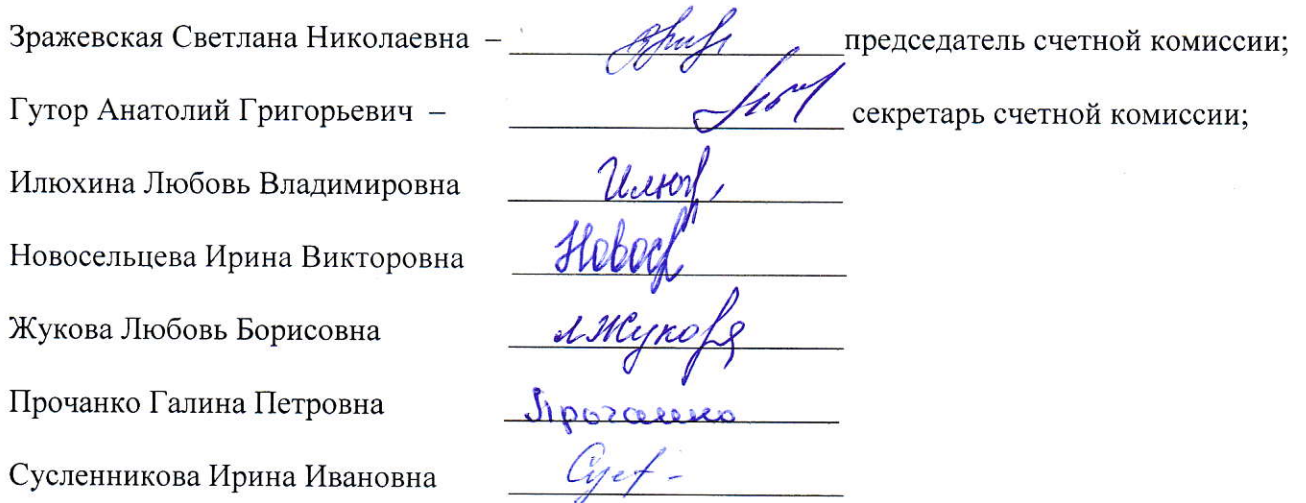 Зражевская Светлана Николаевна – председатель счетной комиссии;
Гутор Анатолий Григорьевич – секретарь счетной комиссии;
Илюхина Любовь Владимировна Илюх
Новосельцева Ирина Викторовна Новос
Жукова Любовь Борисовна лЖукова
Прочанко Галина Петровна Прочанко
Сусленникова Ирина Ивановна Сусл